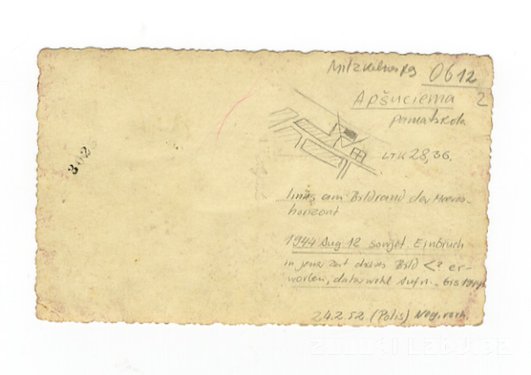 0612
Apšuciema 2
pamatskola
LTK 28,36.
302
links am Bildrand der Meeres-
horizont
1944 Aug 12 sowjet. Einbruch
in jener Zeit dieses Bild <? er-
worben, daher wohl Aufn. bis 1944
24.2.52 (Polis) Neg. vorh.